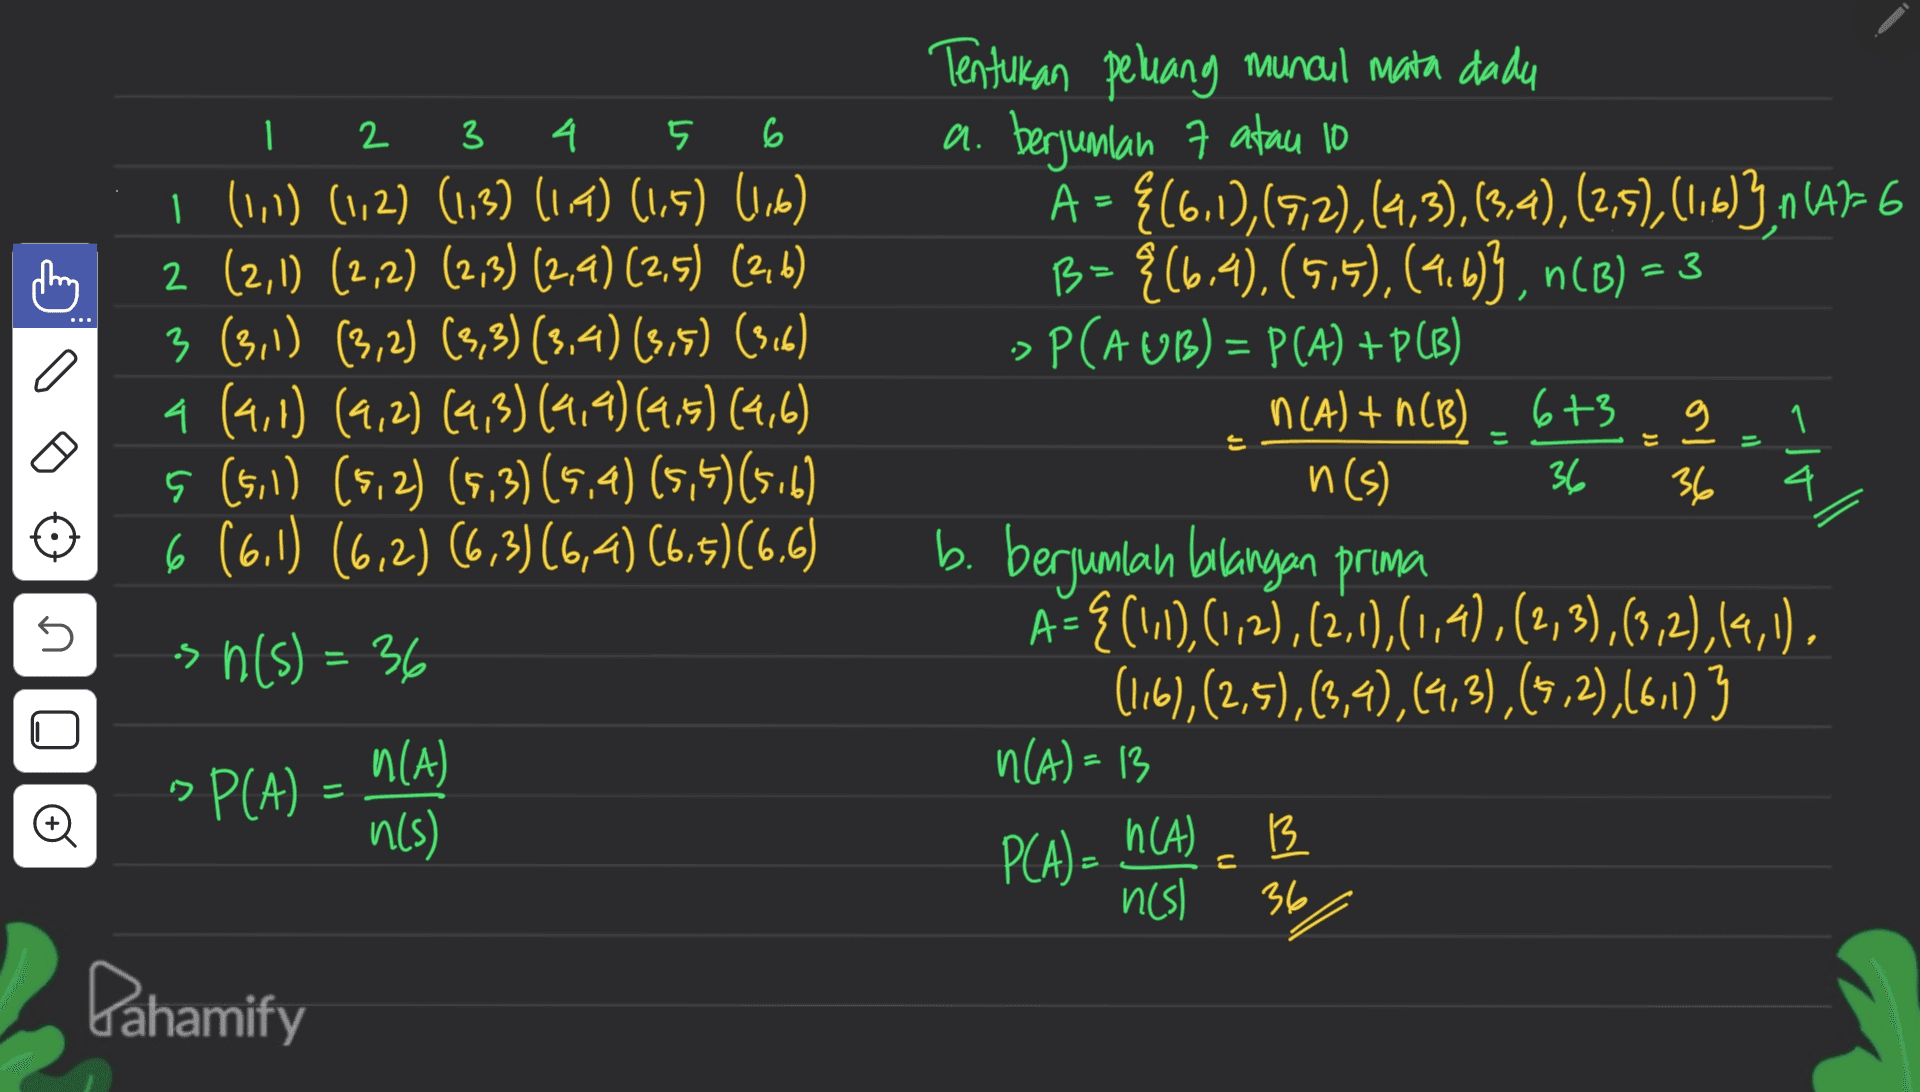 1 2 3 4 5 6
1 (1,1) (1,2) (1,3) (1,4) (1,5) (1,6)
2 (2,1) (2,2) (2,3) (2,4) (2,5) (2,6)
3 (3,1) (3,2) (3,3) (3,4) (3,5) (3,6)
4 (4,1) (4,2) (4,3) (4,4) (4,5) (4,6)
5 (5,1) (5,2) (5,3) (5,4) (5,5) (5,6)
6 (6,1) (6,2) (6,3) (6,4) (6,5) (6,6)
→ n(S) = 36
→ P(A) = n(A)/n(S)
Tentukan peluang muncul mata dadu
a. berjumlah 7 atau 10
A = {(6,1),(5,2),(4,3),(3,4),(2,5),(1,6)}, n(A) = 6
B = {(6,4),(5,5),(4,6)}, n(B) = 3
→ P(A ∪ B) = P(A) + P(B)
= n(A) + n(B)/n(S) = 6+3/36 = 9/36 = 1/4
b. berjumlah bilangan prima
A = {(1,1),(1,2),(2,1),(1,4),(2,3),(3,2),(4,1),
(1,6),(2,5),(3,4),(4,3),(5,2),(6,1)}
n(A) = 13
P(A) = n(A)/n(S) = 13/36
Pahamify